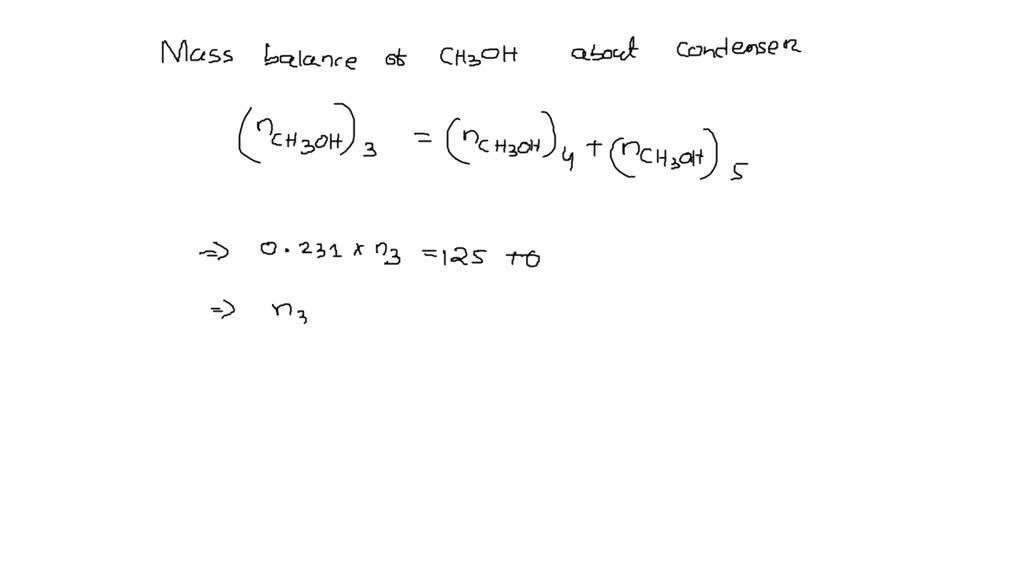 Mass balance of CH3OH about condenser
(nCH3OH)3 = (nCH3OH)4 + (nCH3OH)5
=> 0.231 × n3 = 125 + 0
=> n3